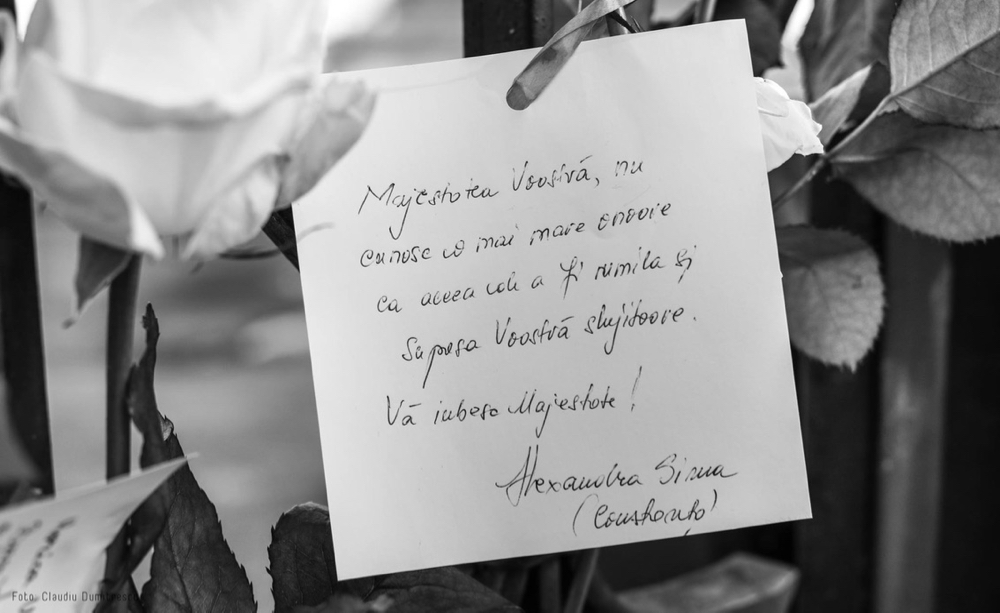 Majestatea Voastră, nu
cunosc o mai mare onoare
ca aceea de a fi umila și
supusa Voastră slujitoare.
Vă iubesc Majestate!
Alexandra Sima
(Constanța)
Foto: Claudiu Dumitrescu